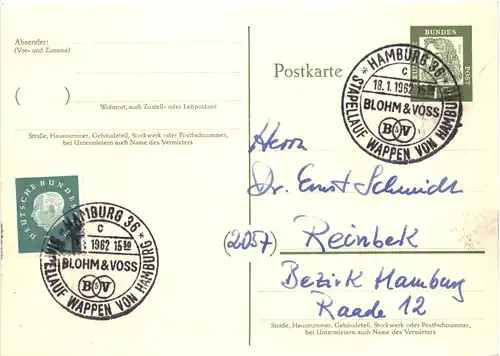 Absender:
(Vor- und Zuname)
Wohnort, auch Zustell- oder Leitpostamt
Straße, Hausnummer, Gebäudeteil, Stockwerk oder Postfachnummer,
bei Untermietern auch Name des Vermieters
DEUTSCHE BUNDES
HAMBURG 36
c
1962 15
BLOHM & VOSS
B & V
STAPELLAUF WAPPEN VON HAMBURG
Postkarte
BUNDES
POST
HAMBURG 36
c
18.1.1962 15
BLOHM & VOSS
B & V
STAPELLAUF WAPPEN VON HAMBURG
Herrn
Dr. Ernst Schmidt
(2057)
Reinbek
Bezirk Hamburg
Raade 12
Straße, Hausnummer, Gebäudeteil, Stockwerk oder Postfachnummer,
bei Untermietern auch Name des Vermieters